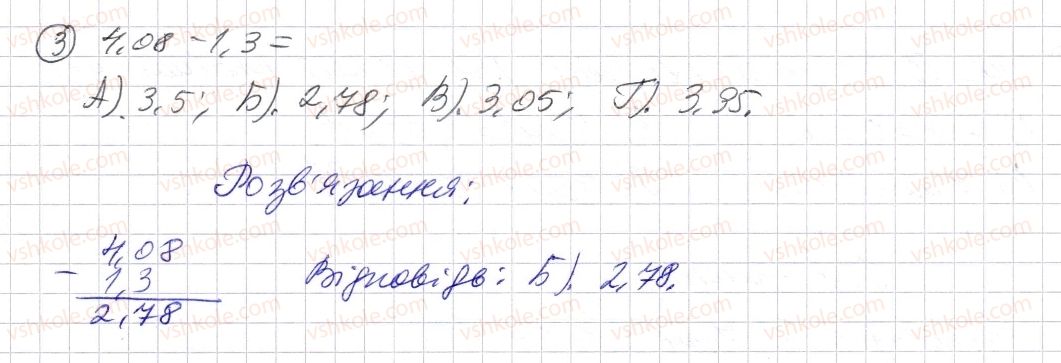 3 4,08 - 1,3 =
А). 3,5; Б). 2,78; В). 3,05; Г). 3,95.
Розв'язання:
- 4,08
1,3
2,78
Відповідь: Б). 2,78.